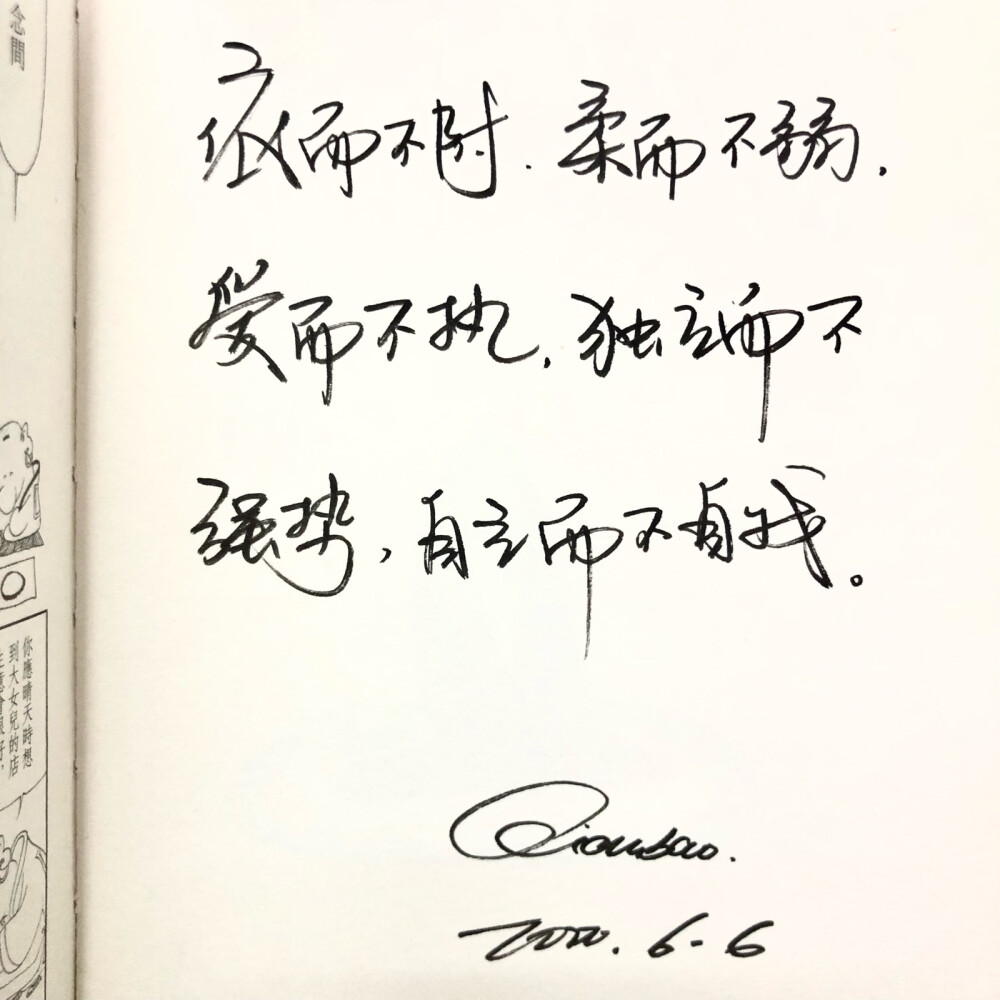 念間
依而不附.柔而不弱.
爱而不执,独立而不
强势,自立而不自我。
你應晴天時想
到大女兒的店
Qianbao.
2020.6-6